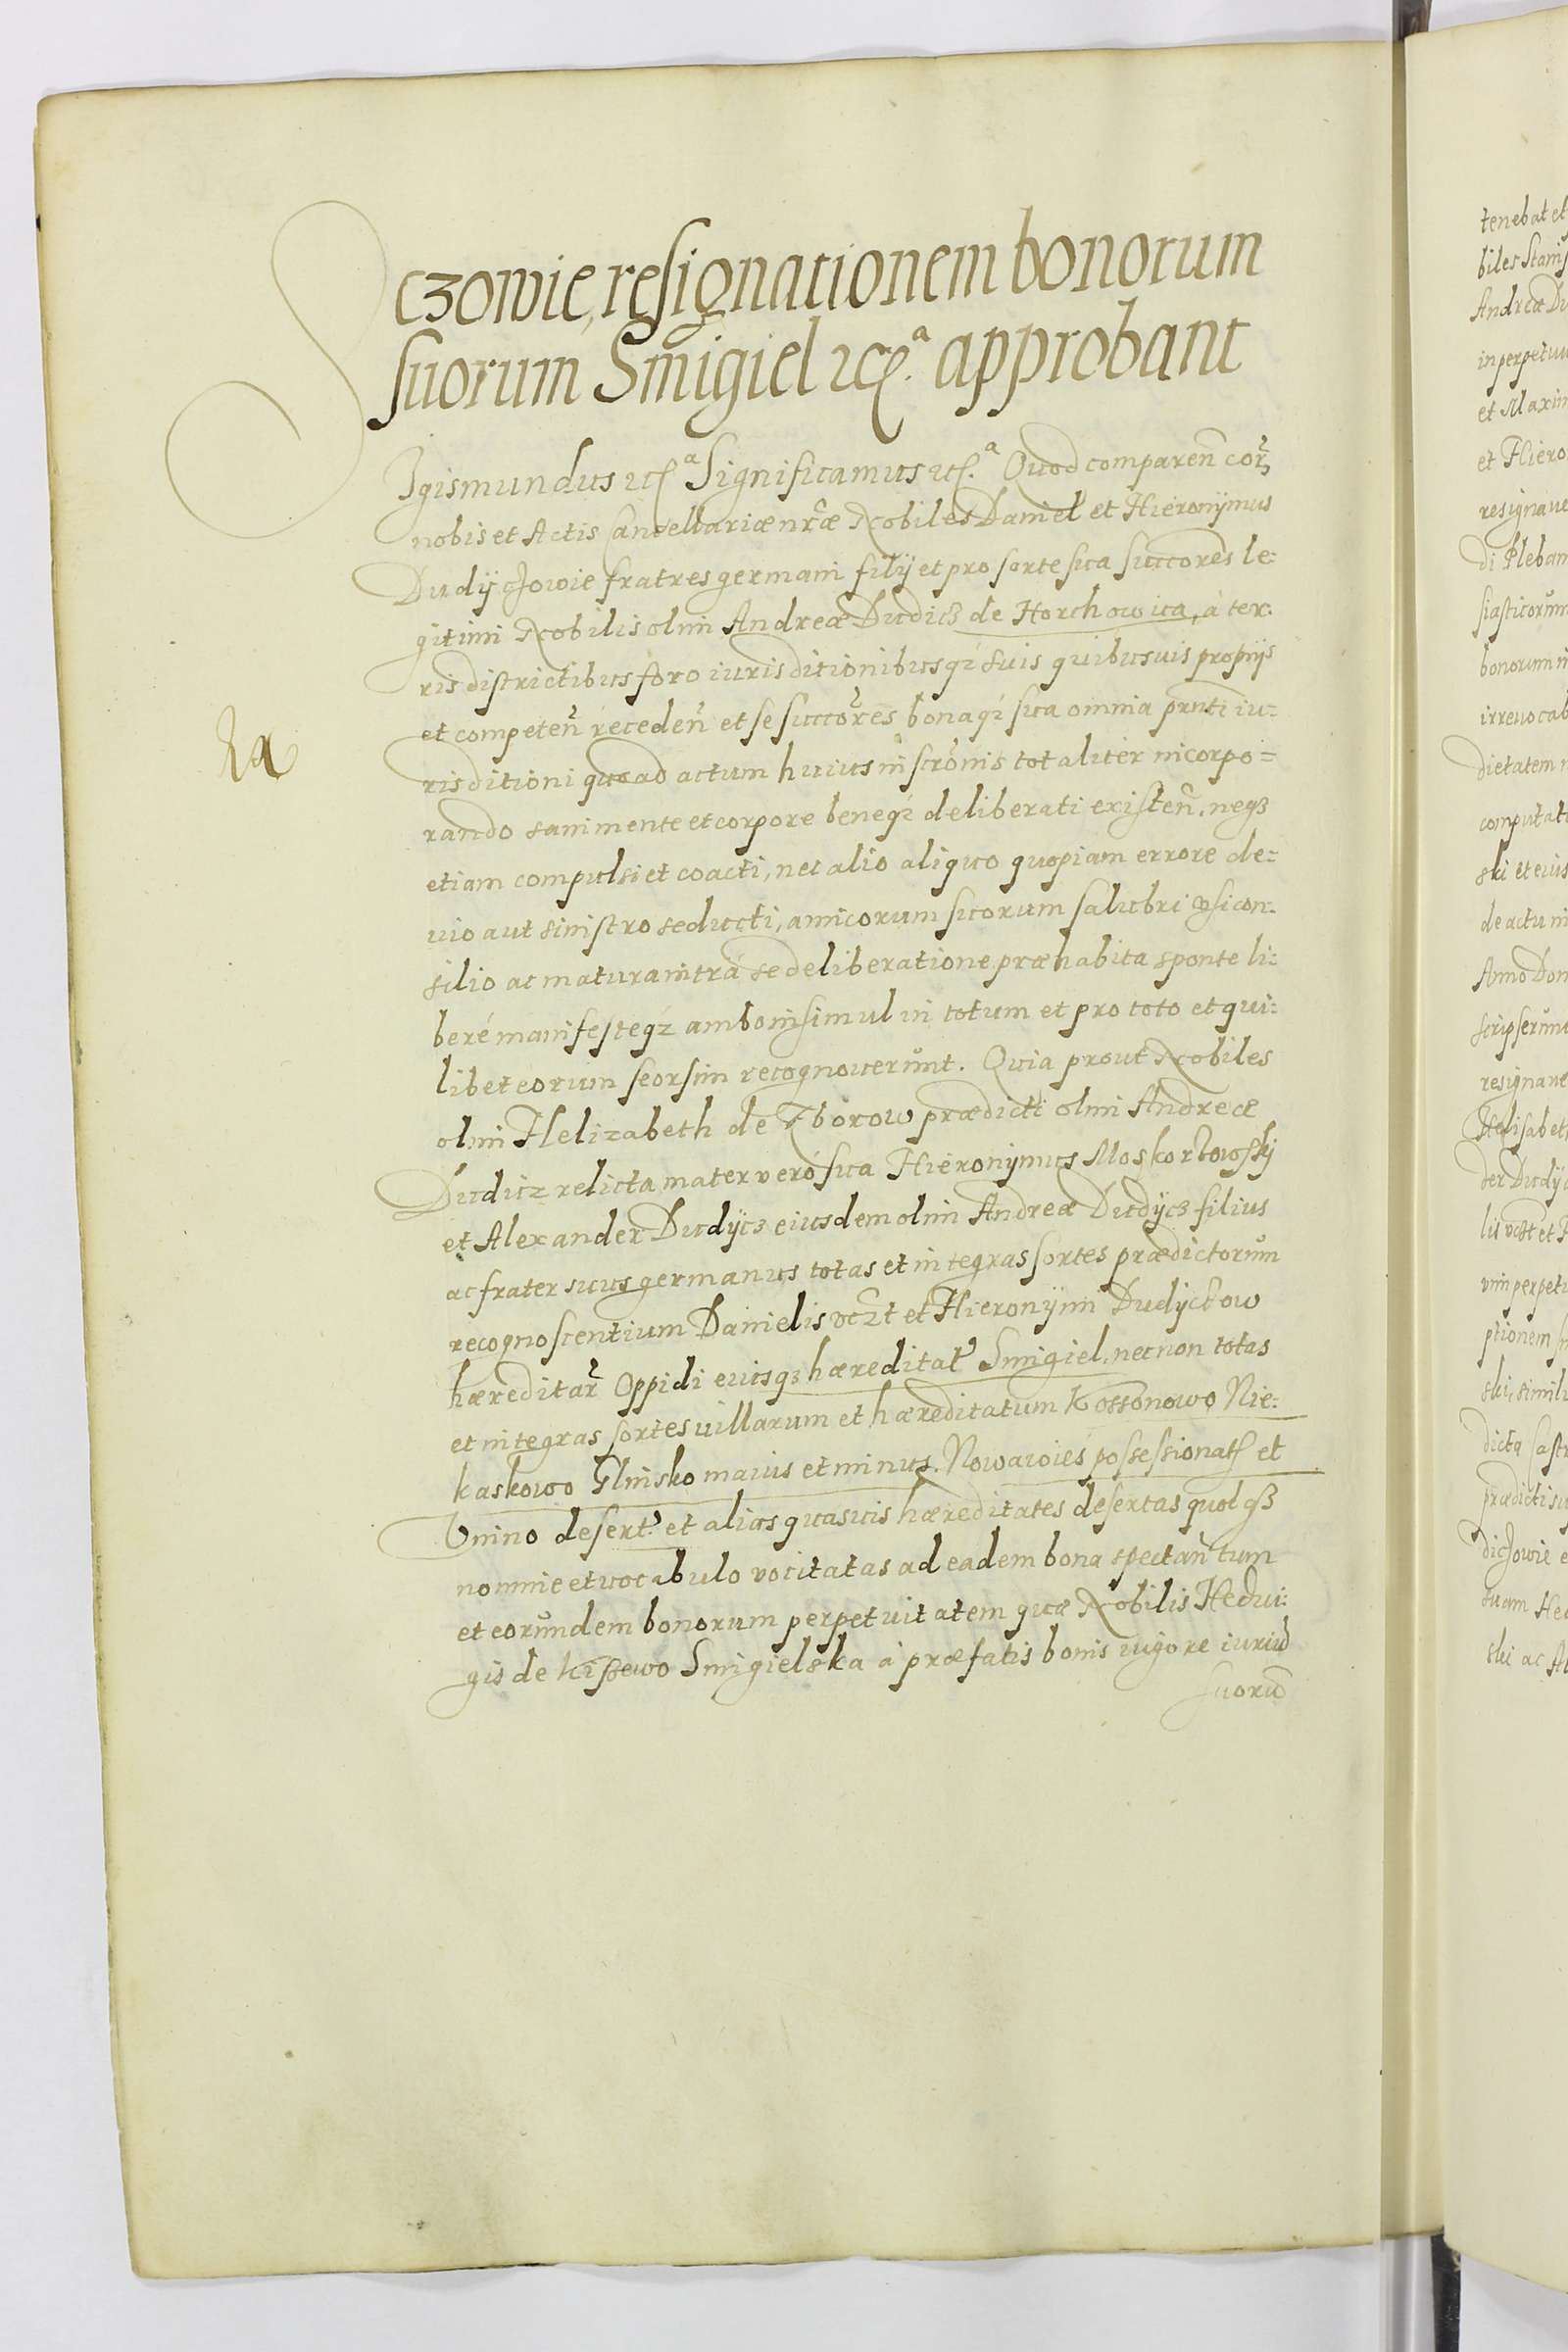 czowie, resignationem bonorum
suorum Smigiel etc.ᵃ approbant
Igismundus etcᵃ Significamus etc.ᵃ Quod comparen̄ cor̃
nobis et Actis Cancellariæ nr̃æ Nobiles Daniel et Hieronijmus
Dudÿczowie fratres germani filij et pro sorte sua succores le-
gitimi Nobilis olim Andreæ Dudicz de Horchowica, à ter-
ris districtibus foro iurisditionibusq́ suis quibusuis proprijs
et competen̄ receden̄ et se succores bonaq́ sua omnia pñti iu-
risditioni quoad actum huius inscrõnis totaliter incorpo-
rando sani mente et corpore beneq́ deliberati existen̄, neqз
etiam compulsi et coacti, nec alio aliquo quopiam errore de-
uio aut sinistro seducti, amicorum suorum salubri vsi con-
silio ac matura intrà se deliberatione præhabita sponte li-
beré manifesteq́ƺ ambo insimul in totum et pro toto et qui-
libet eorum seorsim recognouerunt. Quia prout Nobiles
olim Helizabeth de Zborow prædicti olim Andreæ
Dudicz relicta, mater veró sua Hieronijmus Moskorzowskÿ
et Alexander Dudÿcз eiusdem olim Andreæ Dudÿcз filius
ac frater suus germanus totas et integras sortes prædictorum
recognoscentium Danielis vczt et Hieronijmi Dudijczow
hæreditar̃ Oppidi eiusqз hæreditat̃ Smigiel, necnon totas
et integras sortes villarum et hæreditatum Kossonowo Nie-
kaskowo Glinsko maius et minus. Nowawies possessionat̃ et
Vnino desert̃ et alias quasuis hæreditates desertas quolqз
nomine et vocabulo vocitatas ad eadem bona spectan̄ tum
et eorundem bonorum perpetuitatem quæ Nobilis Hedui-
gis de Kiszewo Smigielska à præfatis bonis vigore iurium
suorum
tenebat et
biles Stanis
Andreæ Du
in perpetuu
et Maxim
et Hiero
resignaue
di Pleban
siasticorum
bonorum
irreuocab
dietatem
computat
ski et eius
de actu in
Anno Dom
scripserunt
resignaue
Helisabet
der Dudÿc
lis vczt et
vim perpetu
ptionem
ski, simili
dicta castr
prædicti su
diczowie e
tuam Hed
ski ac